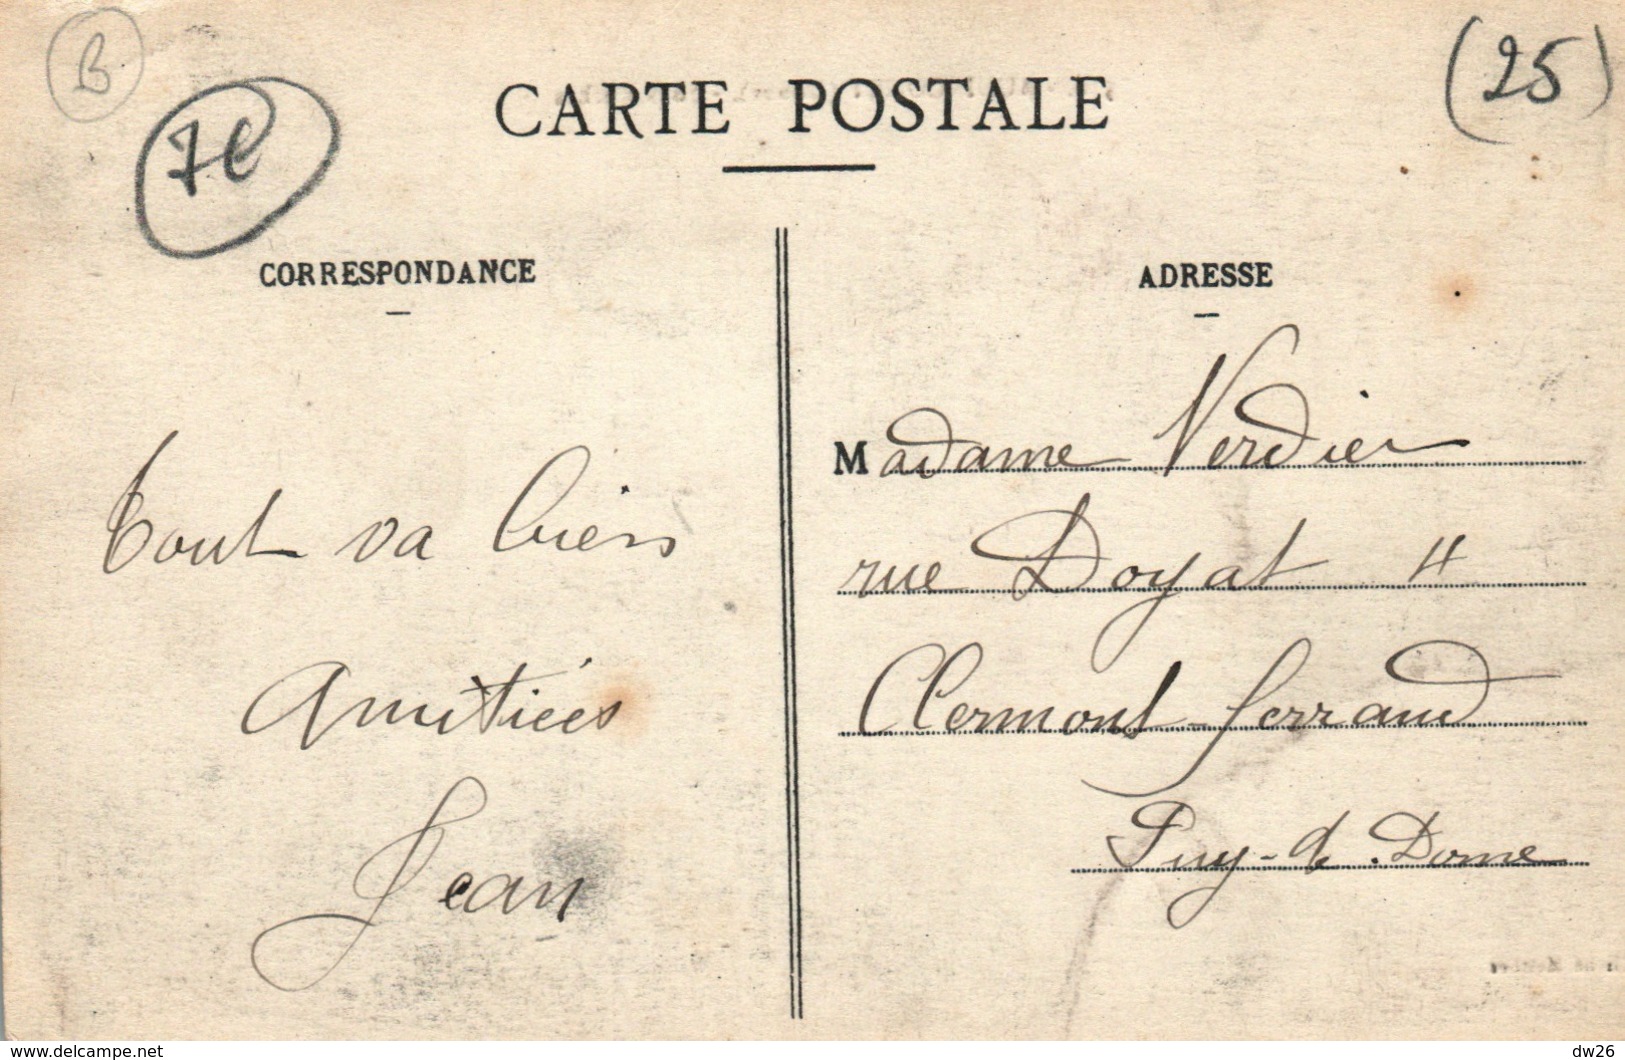 B
7e
(25)
CARTE POSTALE
CORRESPONDANCE
Tout va bien
Amitiées
Jean
ADRESSE
Madame Verdier
rue Doyat 4
Clermont-Ferrand
Puy-de-Dome
www.delcampe.net
dw26